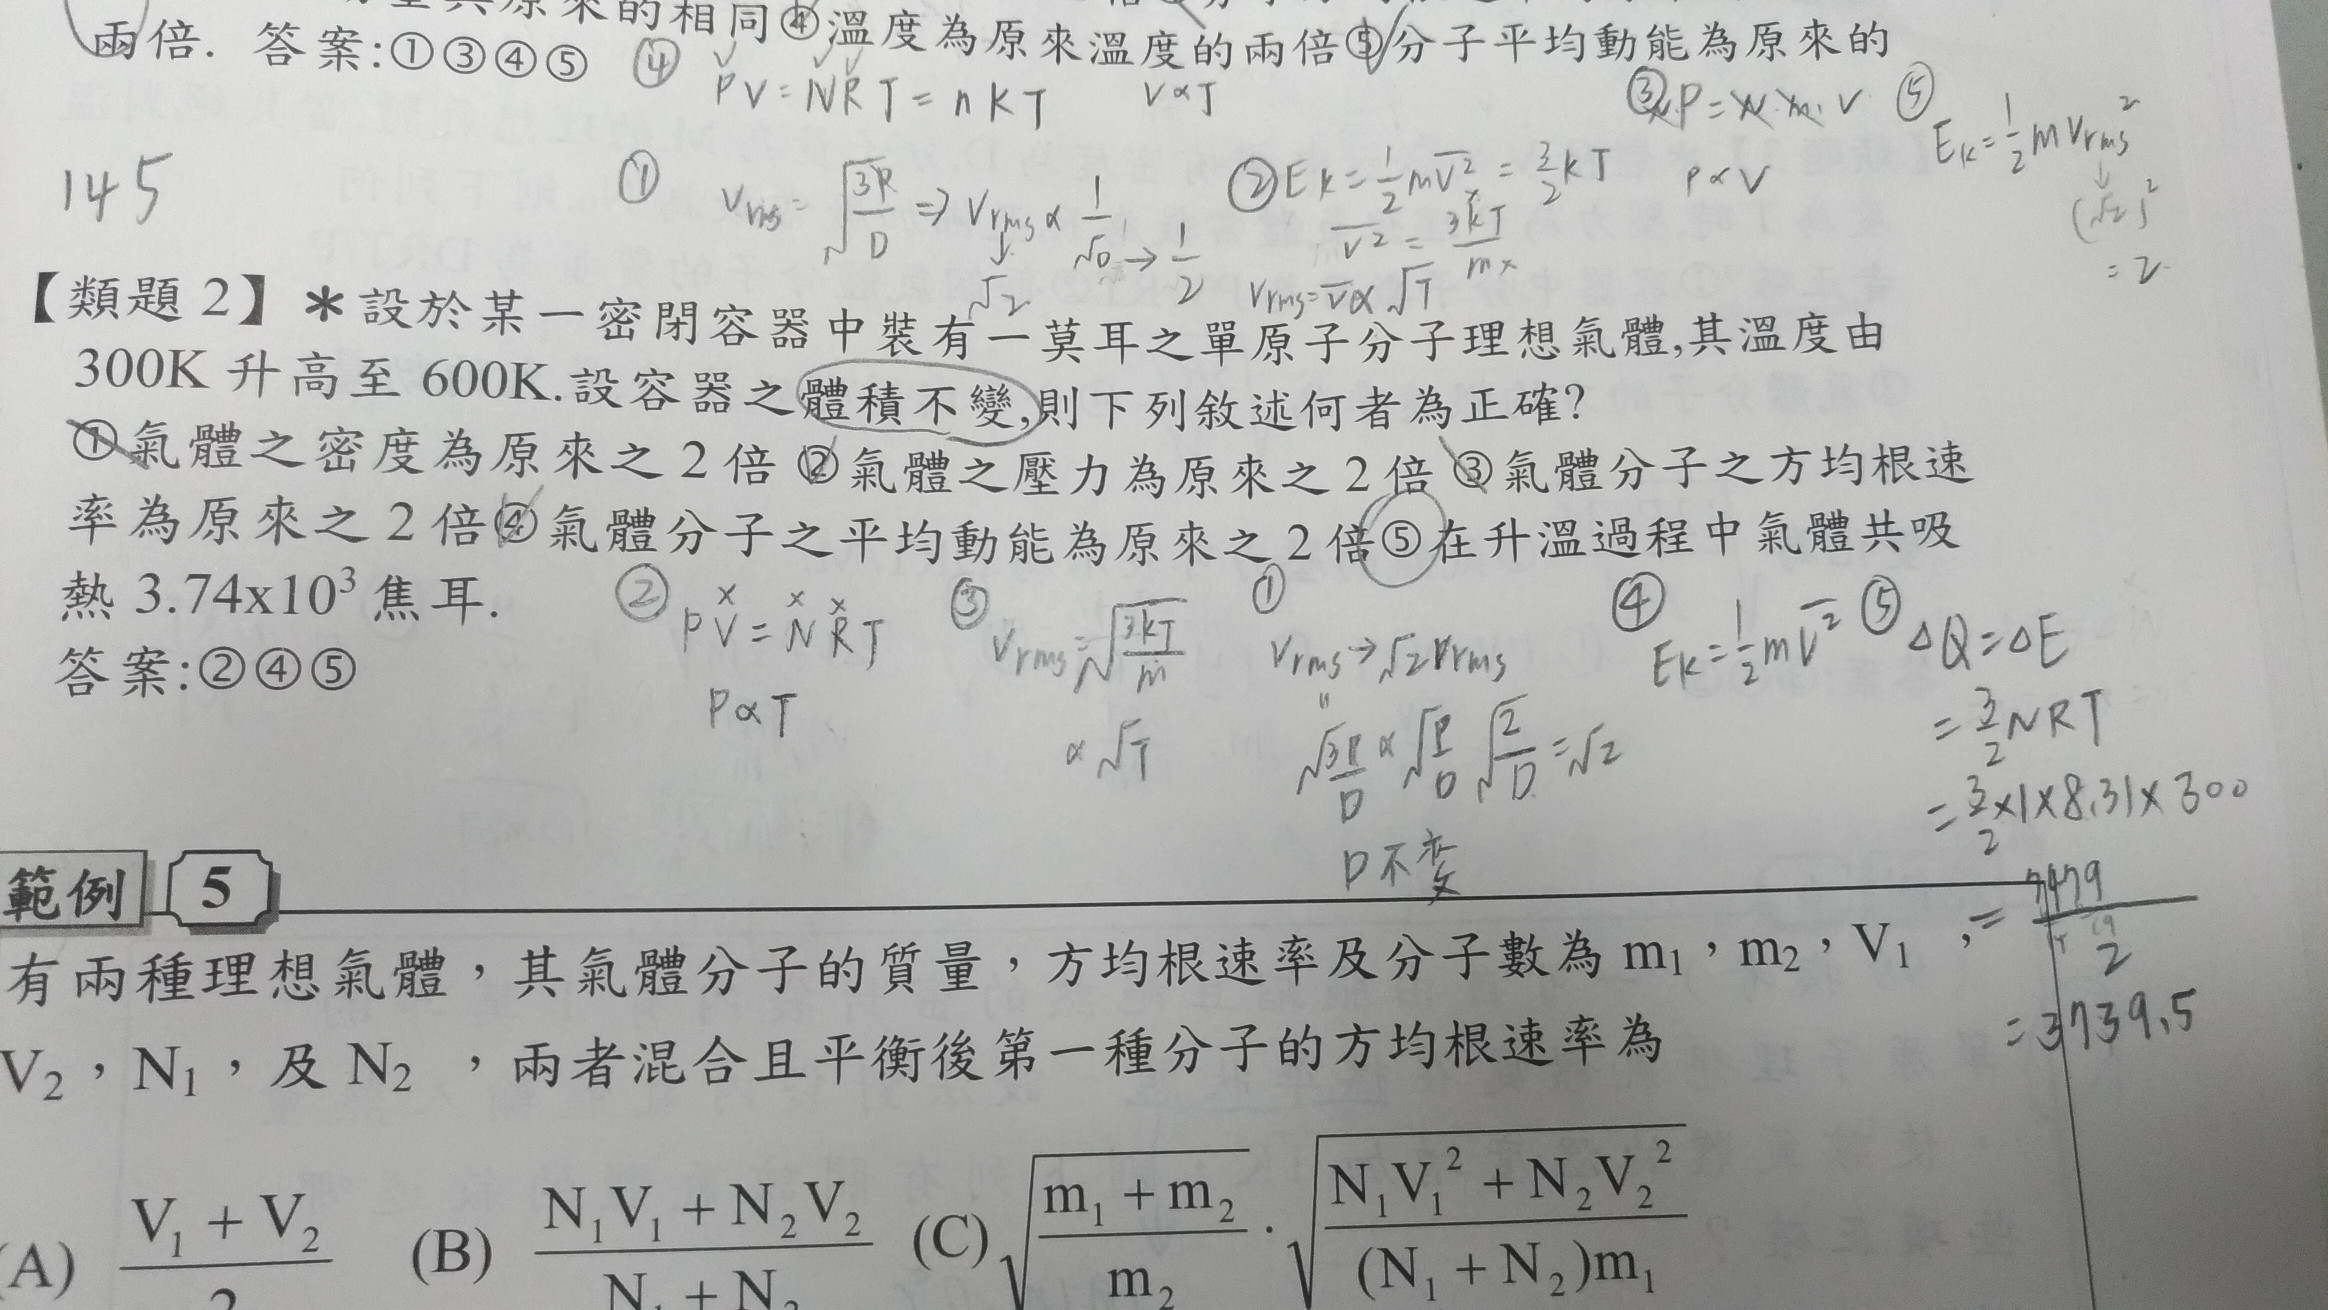 原來的相同④溫度為原來溫度的兩倍⑤分子平均動能為原來的
兩倍. 答案:①③④⑤
④ PV = NRT = nKT V∝T
③ P = N·m·V P∝V
⑤ Ek = 1/2 m Vrms² (√2)² = 2
145
① Vrms = √(3P/D) ⇒ Vrms ∝ 1/√D → 1/2
√2
② Ek = 1/2 m V̅² = 3/2 kT
V̅² = 3kT/m
Vrms = V̅ ∝ √T
【類題 2】＊設於某一密閉容器中裝有一莫耳之單原子分子理想氣體,其溫度由
300K 升高至 600K.設容器之體積不變,則下列敘述何者為正確?
①氣體之密度為原來之 2 倍 ②氣體之壓力為原來之 2 倍 ③氣體分子之方均根速
率為原來之 2 倍④氣體分子之平均動能為原來之 2 倍⑤在升溫過程中氣體共吸
熱 3.74x10³ 焦耳.
答案:②④⑤
② PV = NRT
P∝T
③ Vrms = √(3kT/m)
∝ √T
① Vrms → √2 Vrms
√(3P/D) ∝ √(P/D) √(2/D) = √2
D不變
④ Ek = 1/2 m V̅²
⑤ ΔQ = ΔE
= 3/2 NRT
= 3/2 × 1 × 8.31 × 300
= 7479/2
= 3739.5
範例 5
有兩種理想氣體，其氣體分子的質量，方均根速率及分子數為 m₁，m₂，V₁，
V₂，N₁，及 N₂，兩者混合且平衡後第一種分子的方均根速率為
(A) (V₁ + V₂)/2 (B) (N₁V₁ + N₂V₂)/(N₁ + N₂) (C) √((m₁ + m₂)/m₂) · √((N₁V₁² + N₂V₂²)/((N₁ + N₂)m₁))